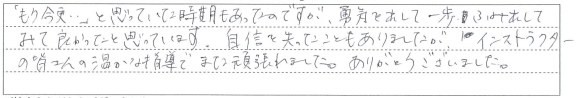 「もう今更…」と思っていた時期もあったのですが、勇気を出して一歩ふみ出して
みて良かったと思っています。自信を失ったこともありましたが、インストラクター
の皆さんの温かな指導でまた頑張れました。ありがとうございました。